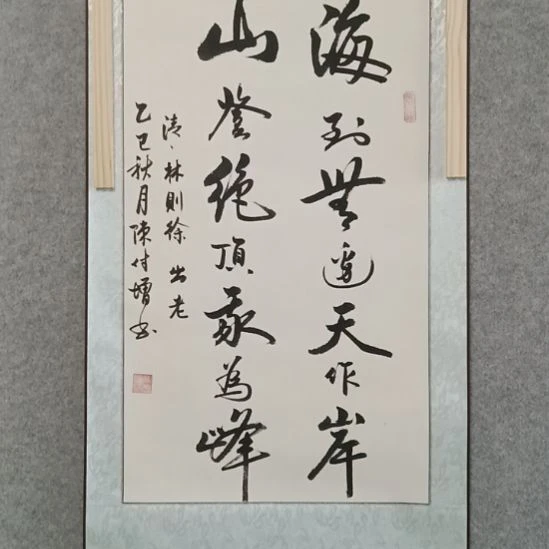 海到無邊天作岸
山登絶頂我為峰
清、林則徐 出老
乙巳秋月陳付增书